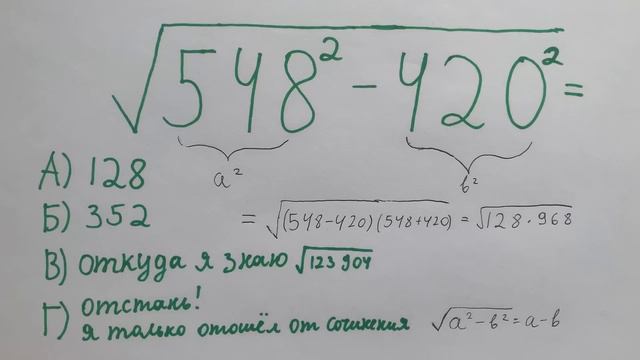 √548² − 420² =
a² b²
А) 128
Б) 352
= √(548−420)(548+420) = √128·968
В) откуда я знаю √123 904
Г) отстань!
я только отошёл от сочинения √a² − b² = a − b